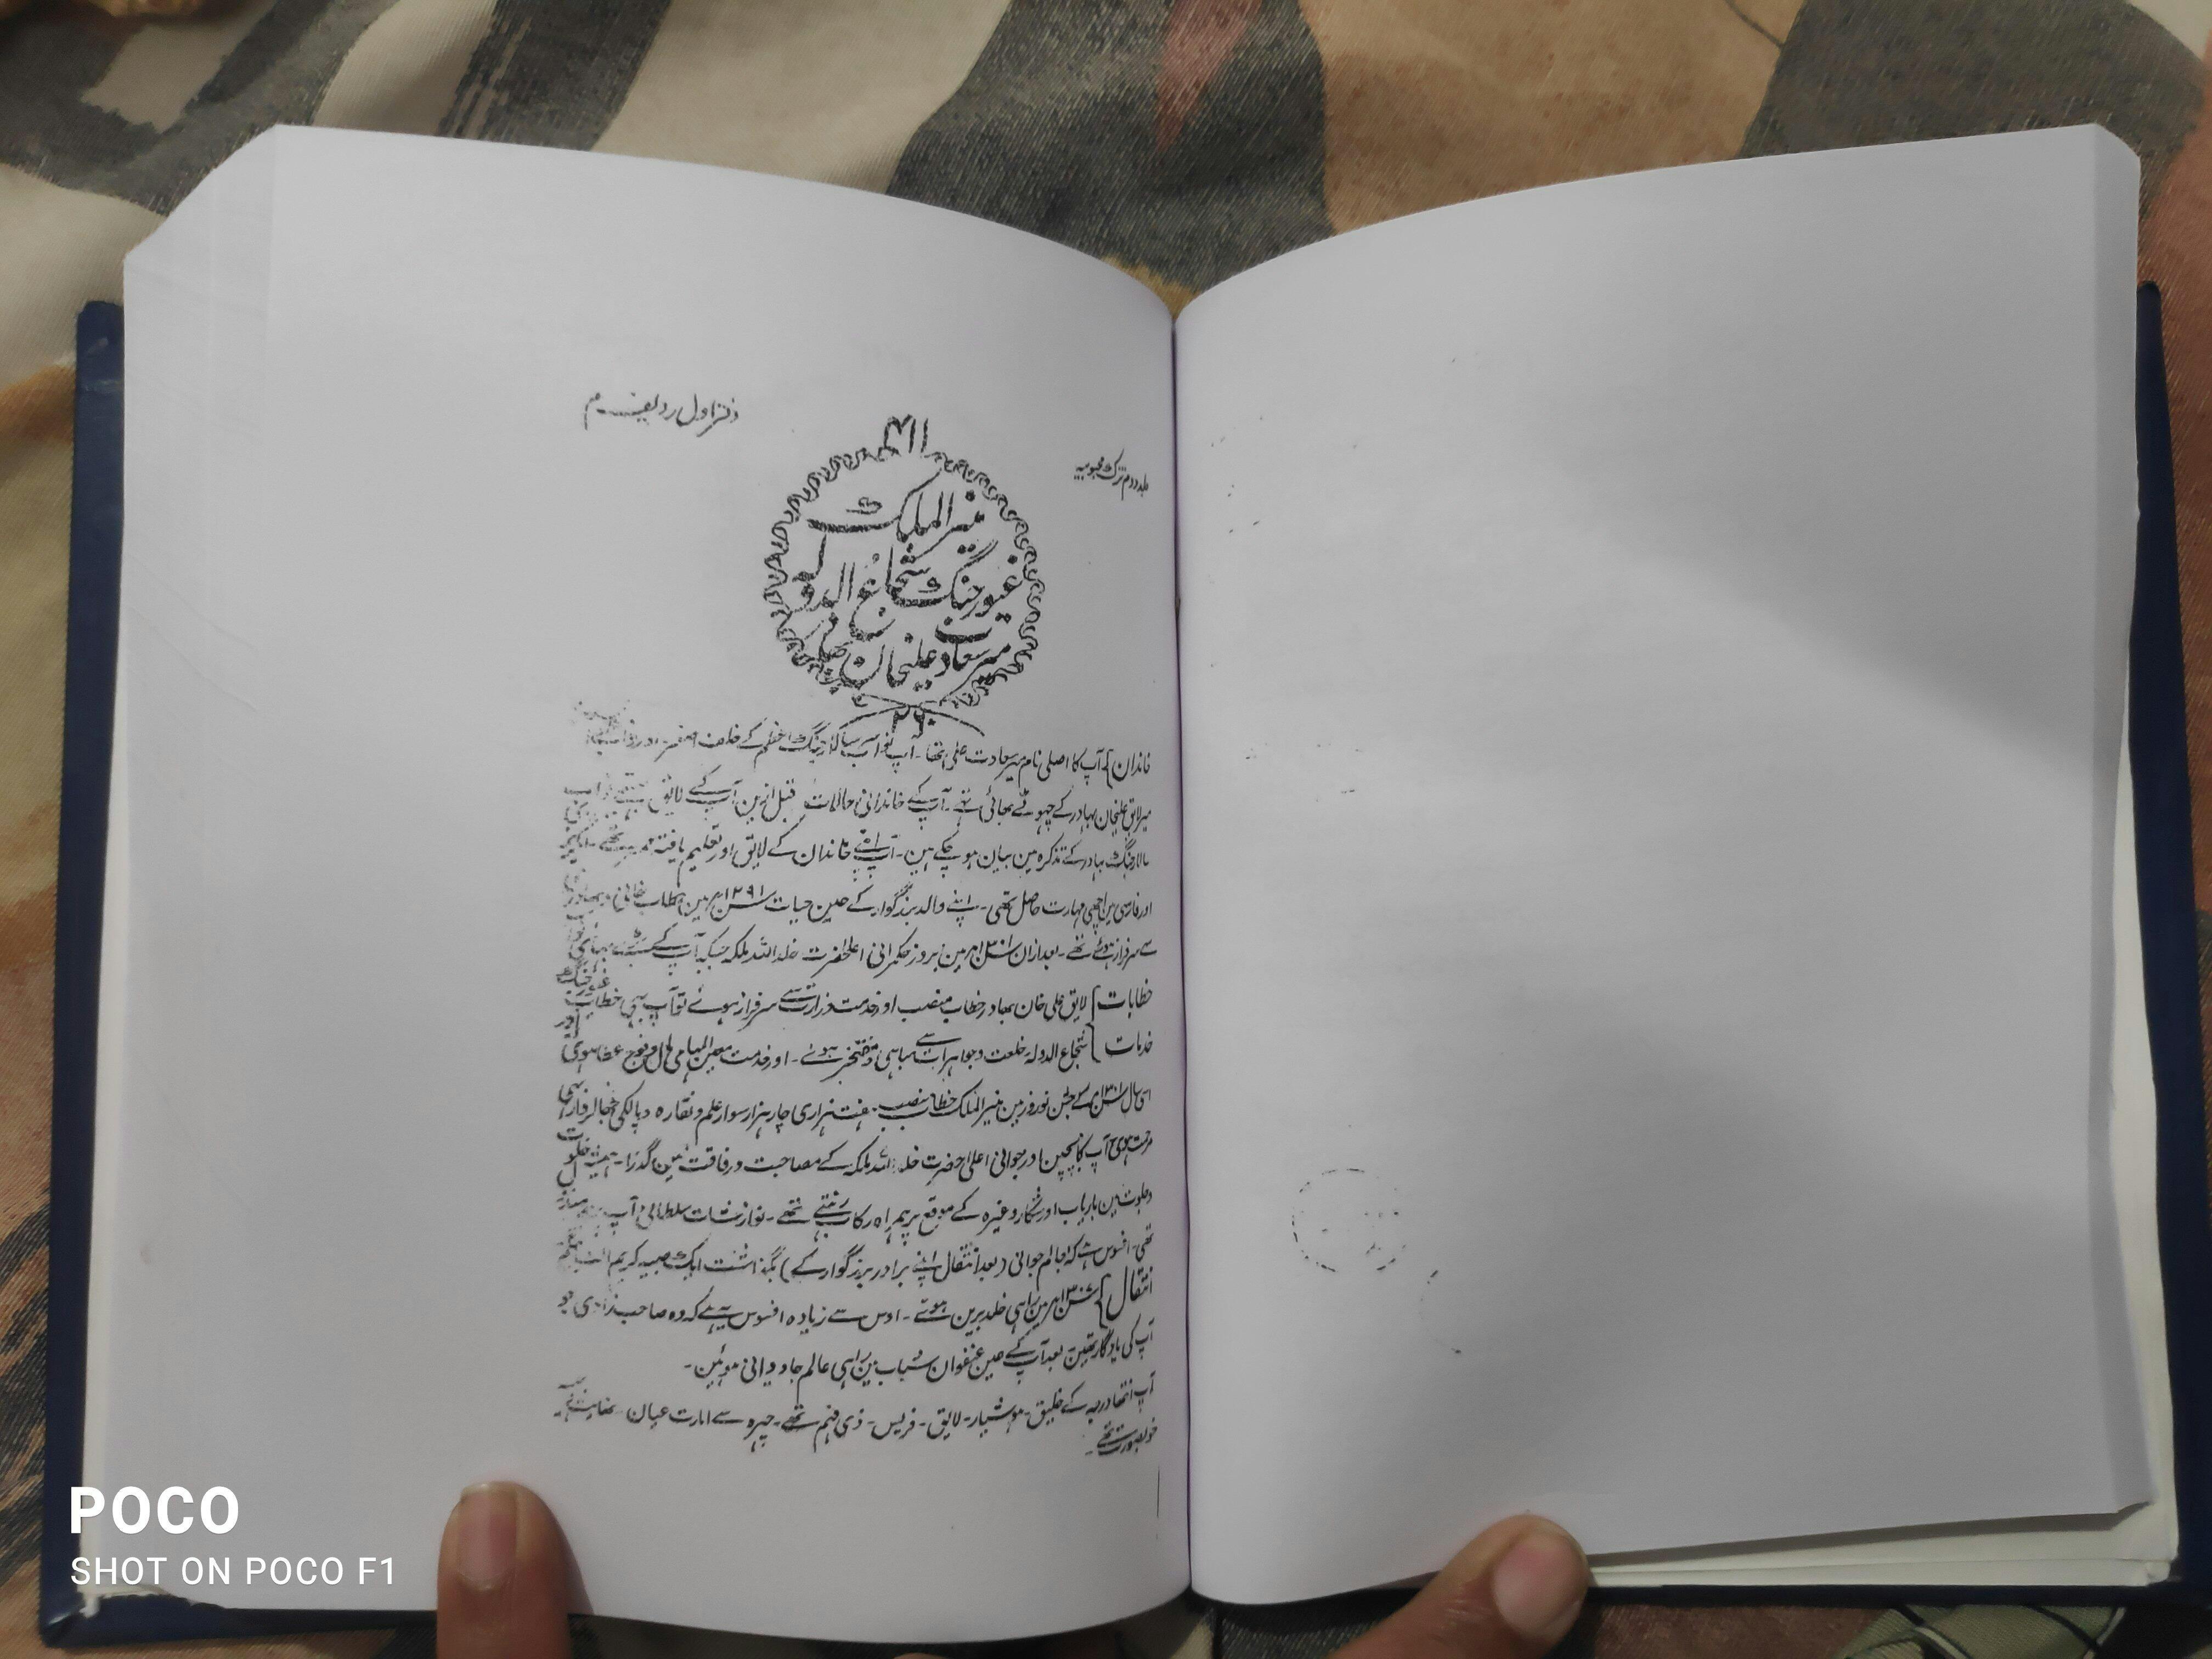 دفتر اول ردیف م
جلد دوم تزک محبوبیہ
منیر الملک
غیور جنگ شجاع الدولہ
میر سعادت علیخان بہادر
۲۶
خاندان} آپ کا اصلی نام میر سعادت علی تھا۔ آپ نواب سالار جنگ اعظم کے خلف اصغر اور نواب
میر لایق علیخان بہادر کے چھوٹے بھائی تھے۔ آپ کے خاندانی حالات قبل ازین آپ کے لایق
سالار جنگ بہادر کے تذکرہ مین بیان ہو چکے ہین۔ آپ اپنے خاندان کے لایق اور تعلیم یافتہ ممبر تھے۔ انگریزی
اور فارسی مین اچھی مہارت حاصل تھی۔ اپنے والد بزرگوار کے حین حیات سنہ ۱۲۹۱ہر مین خطاب خانی و بہادری
سے سرفراز ہوئے تھے۔ بعد ازان سنہ ۱۳۰۱ہر مین بروز حکمرانی اعلحضرت خلد اللہ ملکہ جبکہ آپ کے بڑے بھائی
خطابات} لایق علی خان بہادر خطاب منصب اور خدمت وزارت سے سرفراز ہوئے تو آپ بھی خطاب غیور جنگ
خدمات} شجاع الدولہ خلعت و جواہرات سے مباہی و مفتخر ہوئے۔ اور خدمت معین المہامی مال و فوج عطا ہوی اور
اسی سال سنہ ۱۳۰۱ہر کے جشن نوروز مین منیر الملک خطاب منصب ہفت ہزاری چار ہزار سوار علم و نقارہ و پالکی جھالردار بھی
مرحمت ہوی آپ کا بچپن اور جوانی اعلی حضرت خلد اللہ ملکہ کے مصاحبت و رفاقت مین گذرا۔ ہمیشہ خلوت
و جلوت مین باریاب اور شکار وغیرہ کے موقع پر ہمراہ رکاب رہتے تھے۔ نوازشات سلطانی آپ پر مبذول
تھی۔ افسوس ہے کہ بعالم جوانی (بعد انتقال اپنے برادر بزرگوار کے) بگذاشت ایک صبیہ کریم النسا بیگم
انتقال} سنہ ۱۳۰۷ہر مین راہی خلد برین ہوئے۔ اوس سے زیادہ افسوس یہ ہے کہ وہ صاحب زادی جو
آپ کی یادگار تھین بعد آپ کے عین عنفوان شباب مین راہی عالم جاودانی ہوئین۔
آپ انتہا درجہ کے خلیق۔ ہوشیار۔ لایق۔ فریس۔ ذی فہم تھے۔ چہرہ سے امارت عیان نہایت
خوبصورت تھے۔
POCO
SHOT ON POCO F1